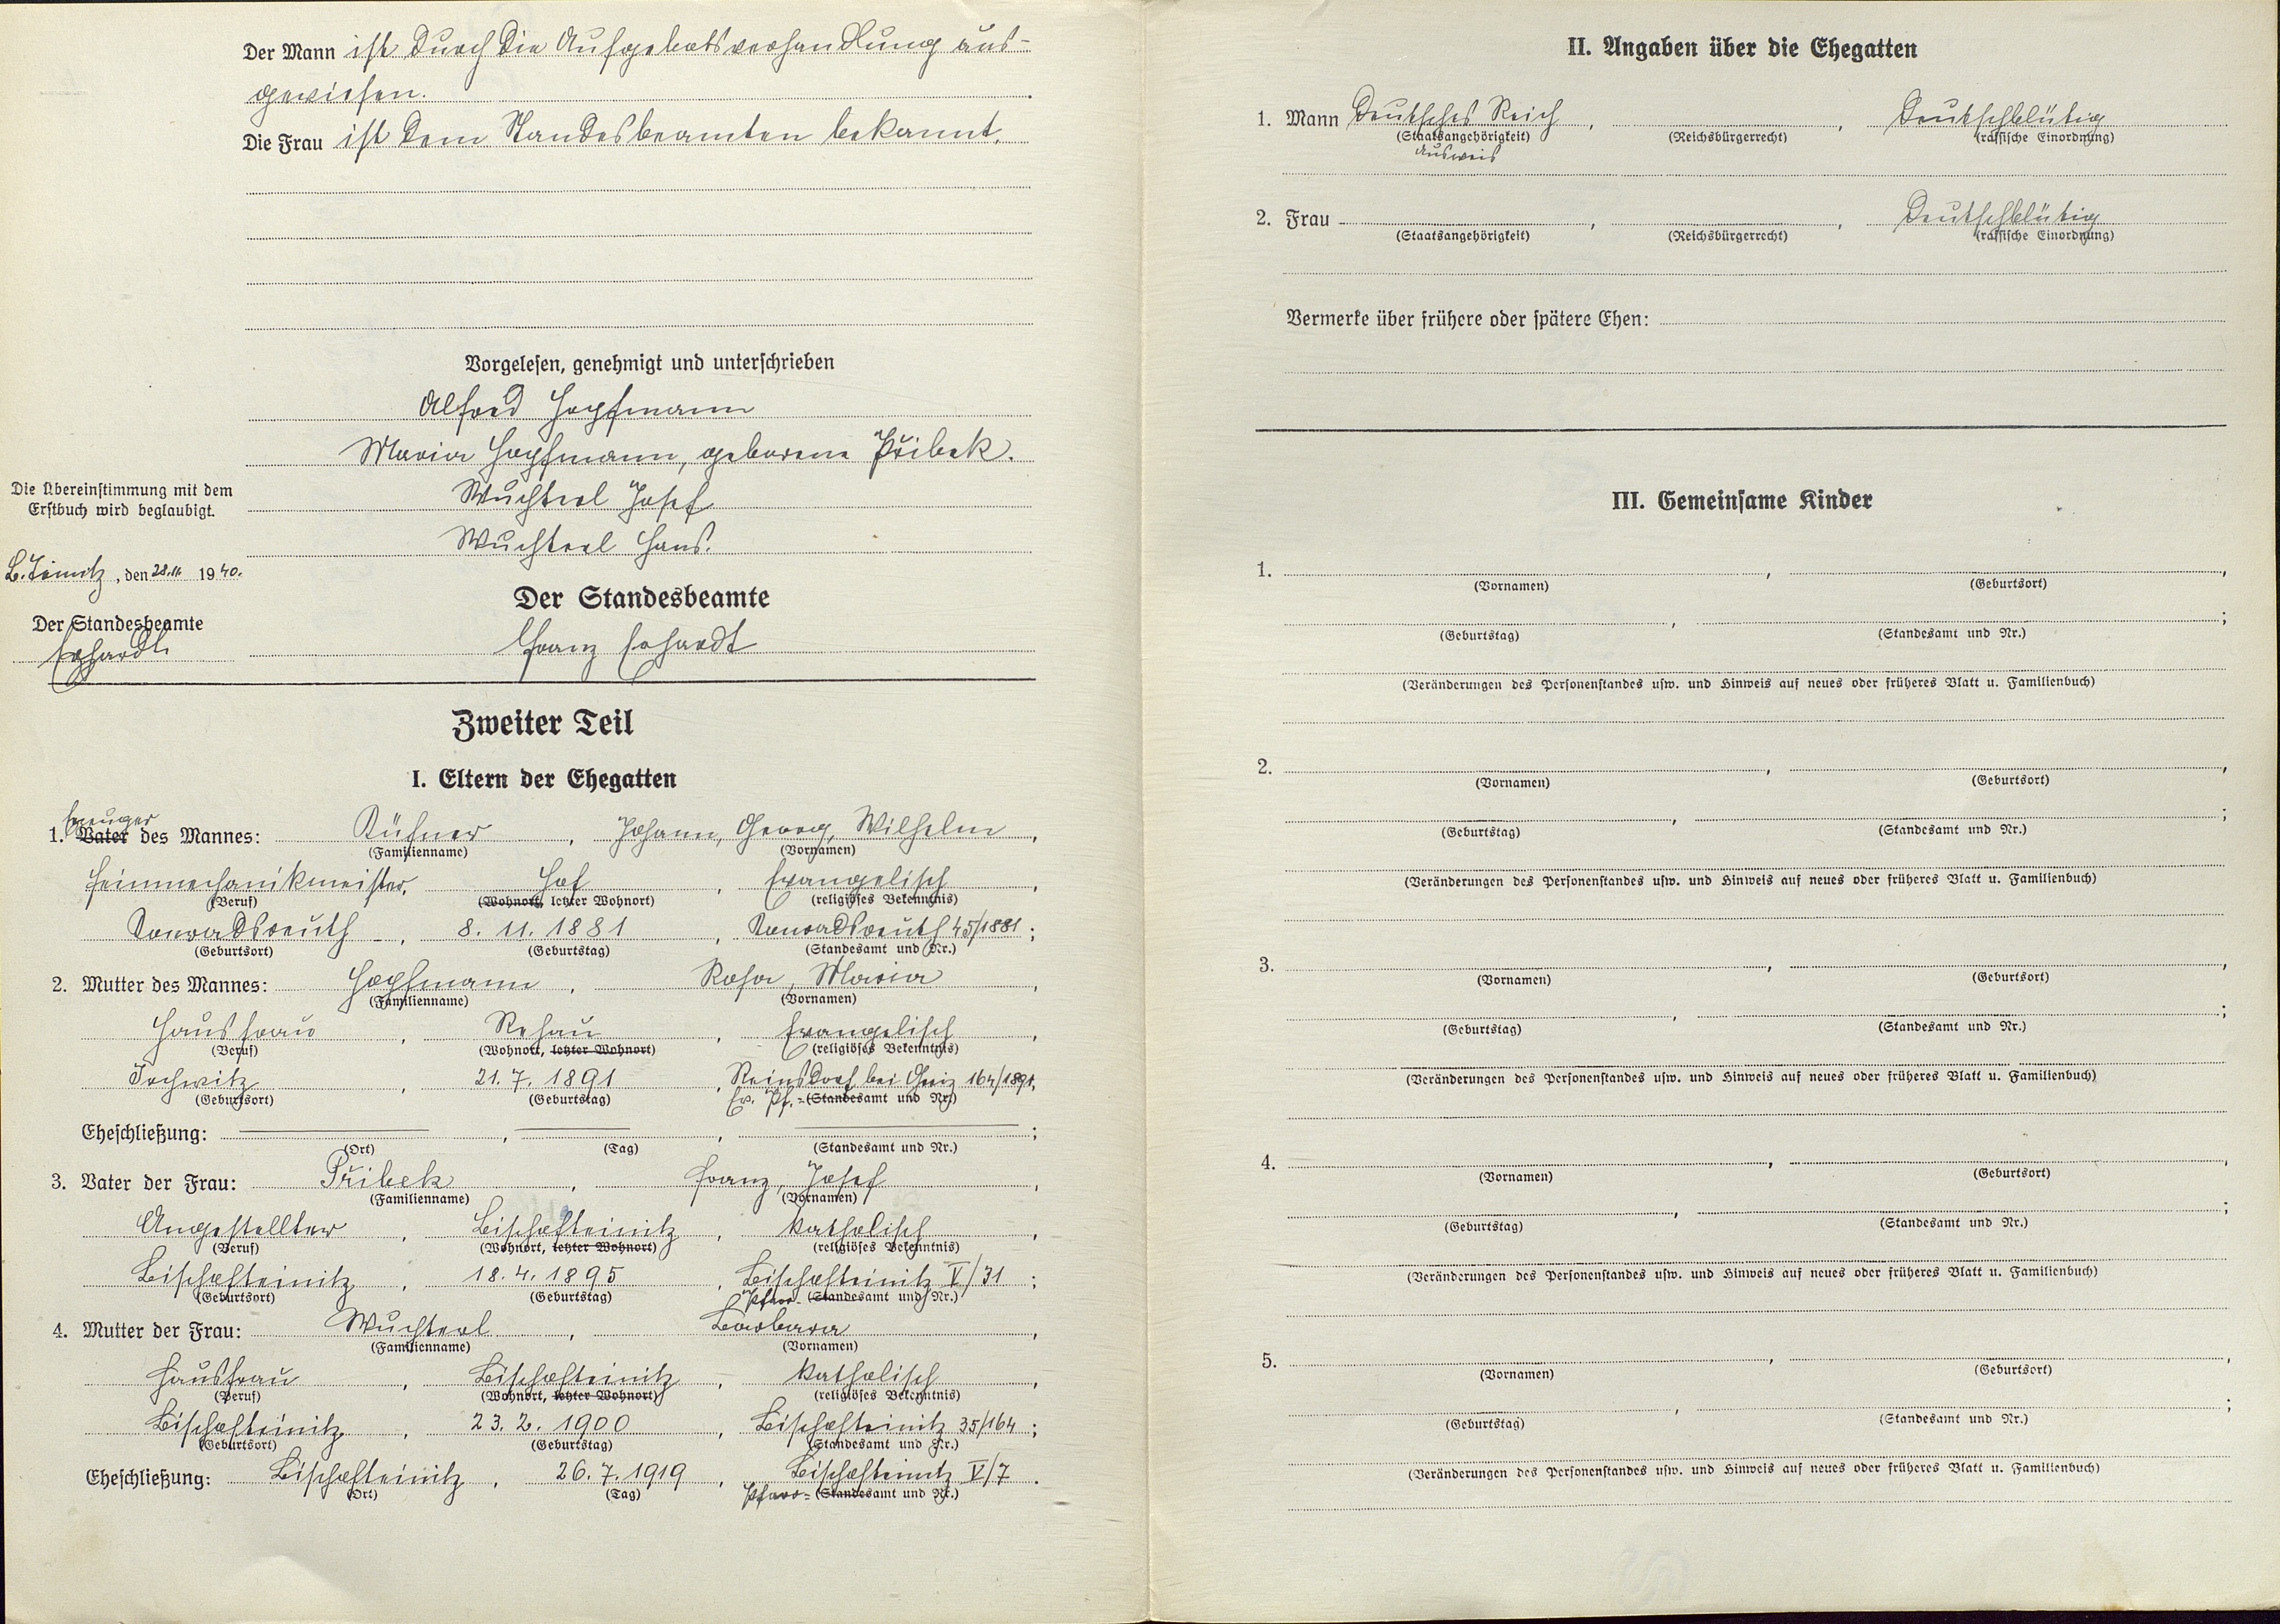 Der Mann ist durch die Aufgebotsverhandlung aus-
gewiesen.
Die Frau ist dem Standesbeamten bekannt.
Vorgelesen, genehmigt und unterschrieben
Alfred Hopfmann
Maria Hopfmann, geborene Přibek.
Wuchterl Josef
Wuchterl Hans.
Die Übereinstimmung mit dem
Erstbuch wird beglaubigt.
B. Teinitz, den 28.11. 1940.
Der Standesbeamte
Erhardt
Der Standesbeamte
Franz Erhardt
Zweiter Teil
I. Eltern der Ehegatten
Erzeuger
1. Vater des Mannes: Küfner, Johann, Georg, Wilhelm,
(Familienname) (Vornamen)
Feinmechanikmeister, Hof, Evangelisch,
(Beruf) (Wohnort, letzter Wohnort) (religiöses Bekenntnis)
Konradsreuth, 8. 11. 1881, Konradsreuth 45/1881;
(Geburtsort) (Geburtstag) (Standesamt und Nr.)
2. Mutter des Mannes: Hopfmann, Rosa, Maria,
(Familienname) (Vornamen)
Hausfrau, Rehau, Evangelisch,
(Beruf) (Wohnort, letzter Wohnort) (religiöses Bekenntnis)
Tschwitz, 21. 7. 1891, Reinsdorf bei Greiz 164/1891,
(Geburtsort) (Geburtstag) Ev. Pf.= (Standesamt und Nr.)
Eheschließung: , , ;
(Ort) (Tag) (Standesamt und Nr.)
3. Vater der Frau: Přibek, Franz, Josef,
(Familienname) (Vornamen)
Angestellter, Bischofteinitz, katholisch,
(Beruf) (Wohnort, letzter Wohnort) (religiöses Bekenntnis)
Bischofteinitz, 18. 4. 1895, Bischofteinitz V/31;
(Geburtsort) (Geburtstag) Pfarr- (Standesamt und Nr.)
4. Mutter der Frau: Wuchterl, Barbara,
(Familienname) (Vornamen)
Hausfrau, Bischofteinitz, katholisch,
(Beruf) (Wohnort, letzter Wohnort) (religiöses Bekenntnis)
Bischofteinitz, 23. 2. 1900, Bischofteinitz 35/164;
(Geburtsort) (Geburtstag) (Standesamt und Nr.)
Eheschließung: Bischofteinitz, 26. 7. 1919, Bischofteinitz V/7.
(Ort) (Tag) Pfarr= (Standesamt und Nr.)
II. Angaben über die Ehegatten
1. Mann Deutsches Reich, , Deutschblütig
(Staatsangehörigkeit) (Reichsbürgerrecht) (rassische Einordnung)
Ausweis
2. Frau , , Deutschblütig
(Staatsangehörigkeit) (Reichsbürgerrecht) (rassische Einordnung)
Vermerke über frühere oder spätere Ehen:
III. Gemeinsame Kinder
1. , ,
(Vornamen) (Geburtsort)
, ;
(Geburtstag) (Standesamt und Nr.)
(Veränderungen des Personenstandes usw. und Hinweis auf neues oder früheres Blatt u. Familienbuch)
2. , ,
(Vornamen) (Geburtsort)
, ;
(Geburtstag) (Standesamt und Nr.)
(Veränderungen des Personenstandes usw. und Hinweis auf neues oder früheres Blatt u. Familienbuch)
3. , ,
(Vornamen) (Geburtsort)
, ;
(Geburtstag) (Standesamt und Nr.)
(Veränderungen des Personenstandes usw. und Hinweis auf neues oder früheres Blatt u. Familienbuch)
4. , ,
(Vornamen) (Geburtsort)
, ;
(Geburtstag) (Standesamt und Nr.)
(Veränderungen des Personenstandes usw. und Hinweis auf neues oder früheres Blatt u. Familienbuch)
5. , ,
(Vornamen) (Geburtsort)
, ;
(Geburtstag) (Standesamt und Nr.)
(Veränderungen des Personenstandes usw. und Hinweis auf neues oder früheres Blatt u. Familienbuch)